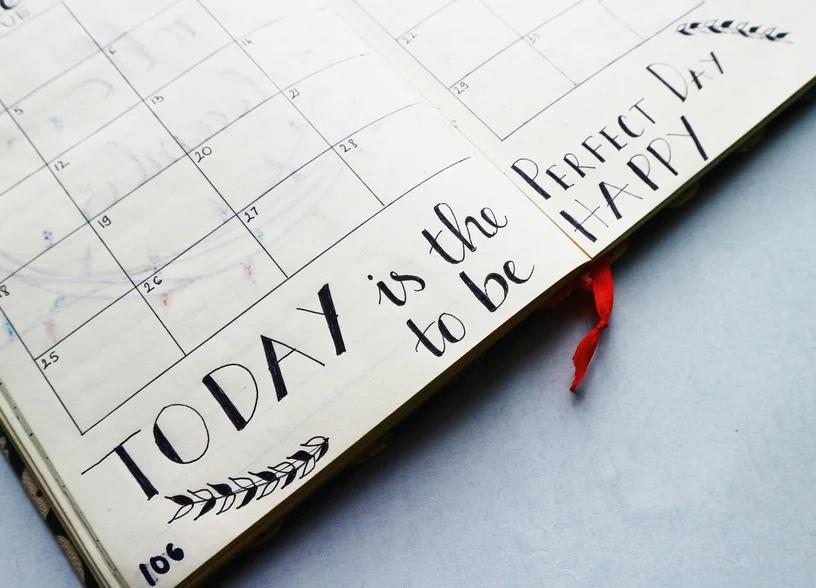 5 6
12 13 14
18 19 20 21
25 26 27 28
22
29 30
TODAY is the PERFECT DAY
to be HAPPY
106